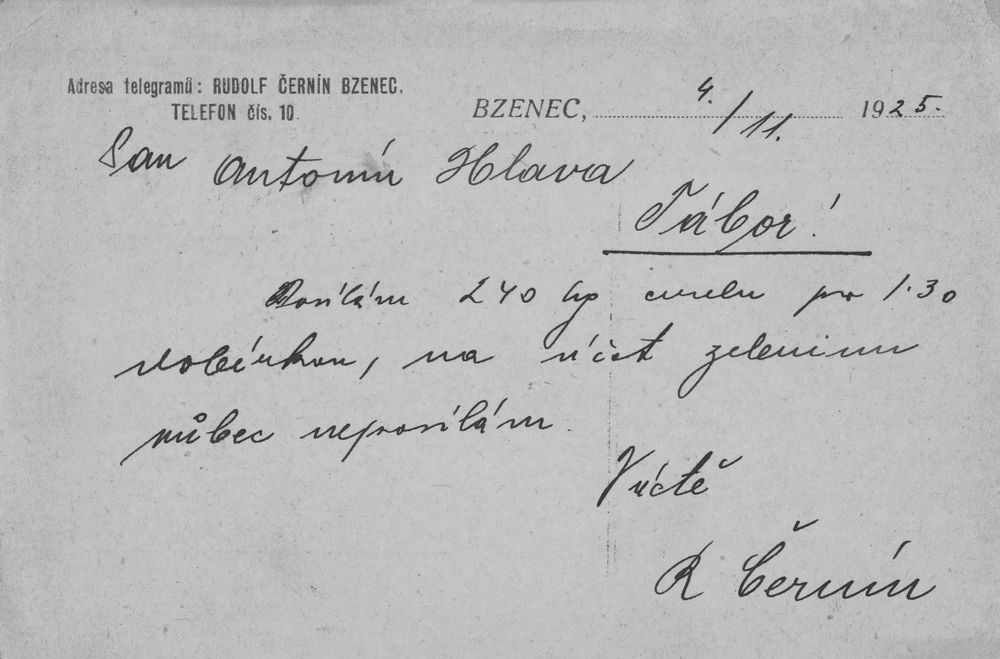 Adresa telegramů: RUDOLF ČERNÍN BZENEC.
TELEFON čís. 10.
BZENEC, 4./11. 1925.
Pan Antonín Hlava
Tábor!
Posílám 240 kg po 1.30
dobírkou, na účet zeleninu
vůbec neposílám.
V úctě
R Černín